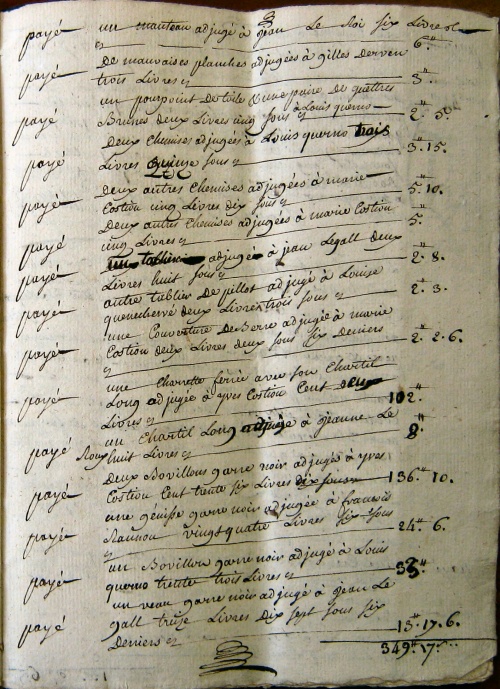 payé un manteau adjugé à jean Le Roi six Livres 6.
payé De mauvaises planches adjugées à gilles Derven
trois Livres 3.
payé un pourpoint De toile & une paire de guettres
Brunes Deux Livres cinq sous à Louis querno 2. 5.
payé Deux Chemises adjugées à Louis querno trois
Livres quinze sous 3. 15.
payé Deux autres Chemises adjugées à marie
Costiou cinq Livres Dix sous 5. 10.
payé Deux autres Chemises adjugées à marie Costiou
cinq Livres 5.
payé un tablier adjugé à jean Legall Deux
Livres huit sous 2. 8.
payé autre tablier De pillot adjugé à Louise
quencherve deux Livres trois sous 2. 3.
payé une Couverture De Berne adjugée à marie
Costiou Deux Livres Deux sous six Deniers 2. 2. 6.
payé une Charrette ferrée avec son Chartil
Long adjugée à yves Costiou Cent Deux
Livres 102.
payé un Chartil Long adjugé à jeanne Le
Roux huit Livres 8.
payé Deux Bovillons garre noir adjugés à yves
Costiou Cent trente six Livres dix sous 136. 10.
payé une genisse garre noir adjugée à francois
vingt quatre Livres six sous 24. 6.
payé un Bovillon garre noir adjugé à Louis
querno trente trois Livres 33.
payé un veau garre noir adjugé à jean Le
gall treize Livres Dix sept sous six
Deniers 13. 17. 6.
349. 17.